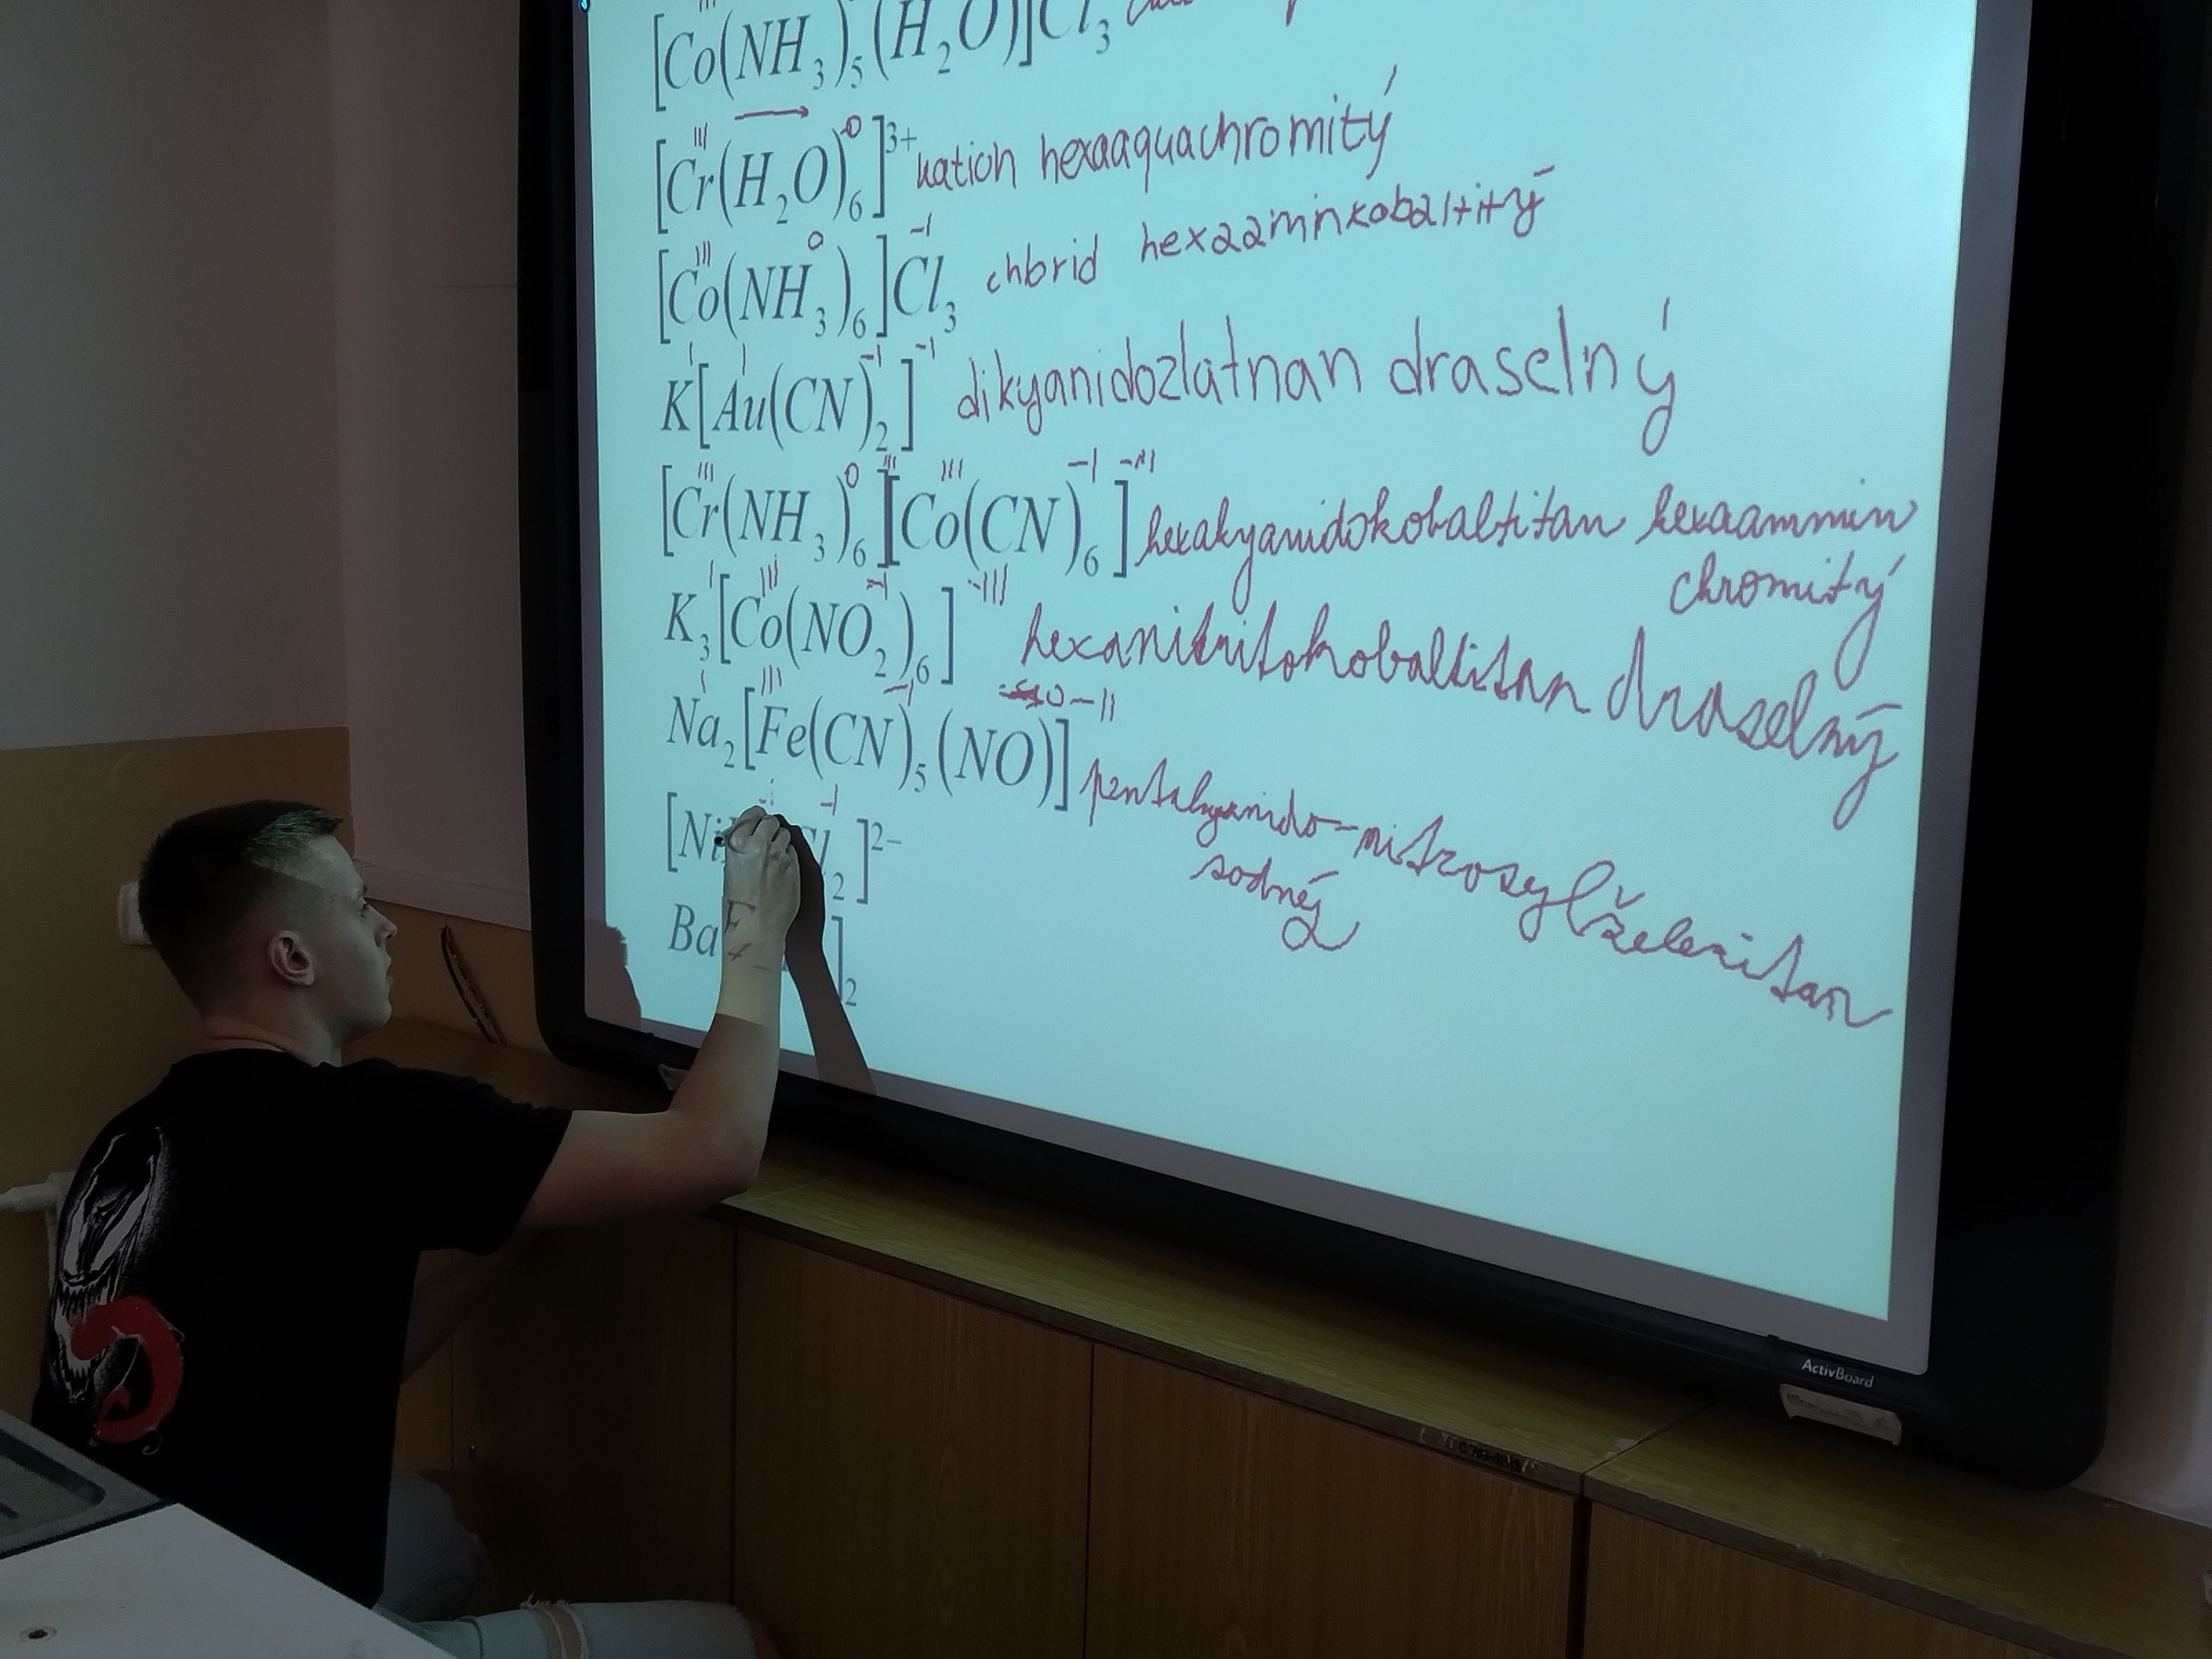 [Co(NH₃)₅(H₂O)]Cl₃
[Cr(H₂O)₆]³⁺ kation hexaaquachromitý
[Co(NH₃)₆]Cl₃ chlorid hexaaminkobaltitý
K[Au(CN)₂] dikyanidozlatnan draselný
[Cr(NH₃)₆][Co(CN)₆] hexakyanidokobaltitan hexaammin
chromitý
K₃[Co(NO₂)₆] hexanitritokobaltitan draselný
Na₂[Fe(CN)₅(NO)] pentakyanido-nitrosylželezitan
sodný
[Ni Cl₂]²⁻
Ba ]₂
ActivBoard